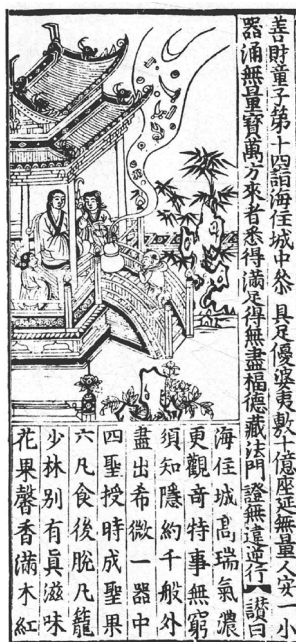 善財童子第十四詣海住城中叅　具足優婆夷敷十億座延無量人安一小
器涌無量寶萬方來者悉得滿足得無盡福德藏法門　證無違逆行　讃曰
海住城高瑞氣濃
更觀奇特事無窮
須知隱約千般外
盡出希微一器中
四聖授時成聖果
六凡食後脫凡籠
少林別有眞滋味
花果馨香滿木紅